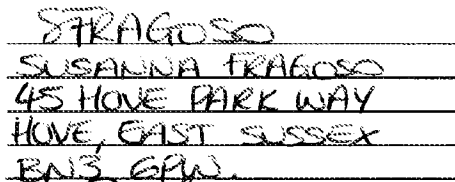 SFRAGOSO
SUSANNA FRAGOSO
45 HOVE PARK WAY
HOVE, EAST SUSSEX
BN3 6PW.